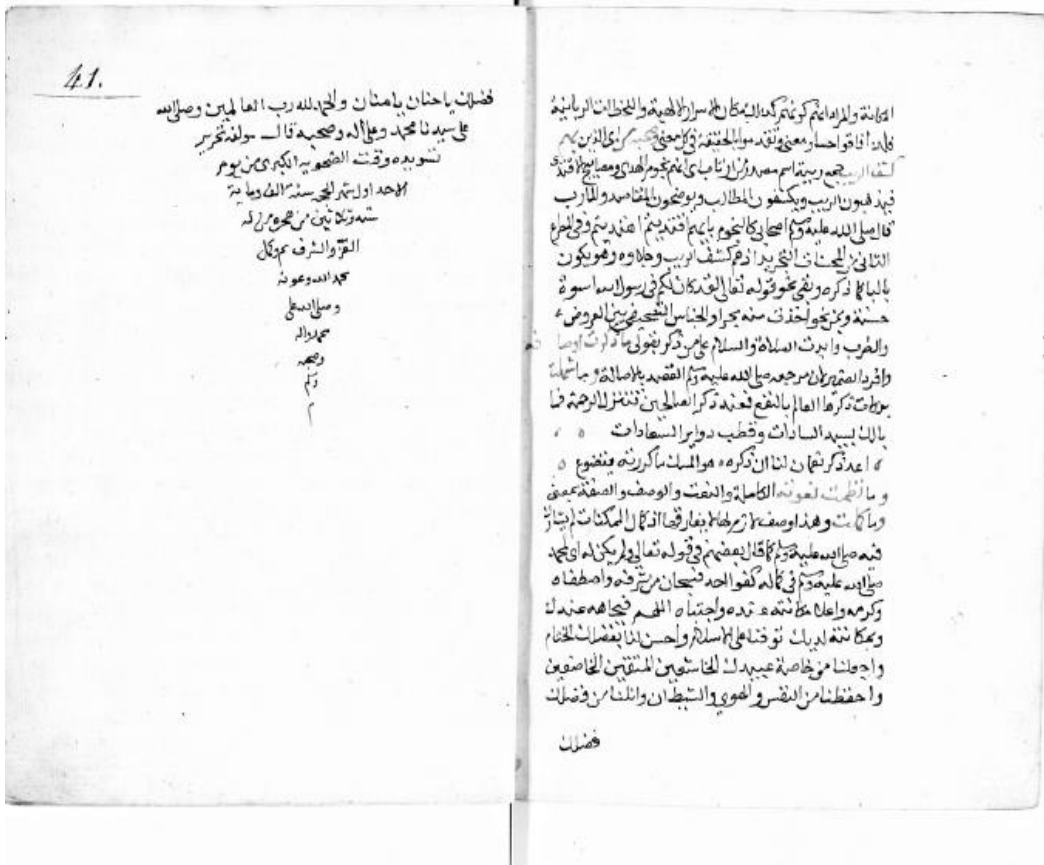 المكانة والمراد انهم كونهم كذلك مكان الاسرار الالهية واللحظات الربانية
كشف الريب جمع ريبة اسم مصدر من ارتاب اي انهم نجوم الهدى ومصابيح الاقتدا
فيذهبون الريب ويكشفون المطالب ويوضحون المقاصد والمآرب
قال صلى الله عليه وسلم اصحابي كالنجوم بايهم اقتديتم اهتديتم وفي المصراع
الثاني من المحسنات التجريد اذ هم كشف الريب وجلاوه وهو يكون
بالباء كما ذكره وبفي نحو قوله تعالى لقد كان لكم في رسول الله اسوة
حسنة وبمن نحو اخذت منه بحرا والجناس التصحيفي بين العروض
والضرب وابدت الصلاة والسلام على من ذكر بقولي ما ذكرت اوصافه
وافرد الضمير لان مرجعه صلى الله عليه وسلم القصد بالاصالة وما شملت
بركات ذكرها العالم بالنفع فعند ذكر الصالحين تتنزل الرحمة فما
بالك بسيد السادات وقطب دواير السعادات
اعد ذكر نعمان لنا ان ذكره هو المسك ما كررته يتضوع
وما نظمت نعوته الكاملة والنعت والوصف والصفة بمعنى
وما كملت وهذا وصف لازم لها لا يفارقها اذ كمال الممكنات لم يتات
فيه صلى الله عليه وسلم كما قال بعضهم في قوله تعالى ولم يكن له اي لمحمد
صلى الله عليه وسلم في كماله كفوا احد فسبحان من شرفه واصطفاه
وكرمه واعلا مكانته عنده واجتباه اللهم فبجاهه عندك
وبمكانته لديك توفنا على الاسلام واحسن لنا بفضلك الختام
واجعلنا من خاصة عبيدك الخاشعين المتقين الخاضعين
واحفظنا من النفس والهوى والشيطان وانلنا من فضلك
فضلك
41.
فضلك يا حنان يا منان والحمد لله رب العالمين وصلى الله
على سيدنا محمد وعلى آله وصحبه قال مولفه تحرير
تسويده وقت الضحوية الكبرى من يوم
الاحد اول شهر الحجة سنة الف ومائة
ستة وثلاثين من هجرة من له
العز والشرف تم وكمل
بحمد الله وعونه
وصلى الله على
محمد واله
وصحبه
وسلم
م